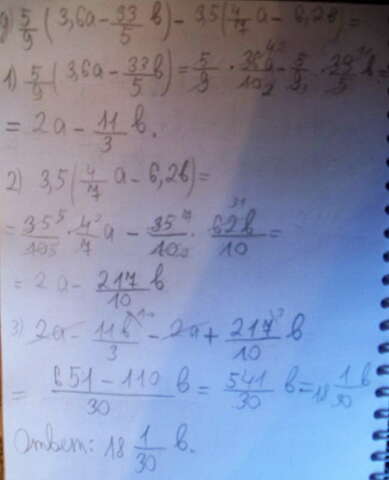 g) 5/9 (3,6a - 33/5 в) - 3,5(4/7 a - 6,2в) =
1) 5/9 (3,6a - 33/5 в) = 5/9 · 36a/10 - 5/9 · 33/5 в
= 2a - 11/3 в.
2) 3,5(4/7 a - 6,2в) =
= 35/10 · 4/7 a - 35/10 · 62в/10 =
= 2a - 217/10 в
3) 2a - 11в/3 - 2a + 217/10 в
= 651 - 110/30 в = 541/30 в = 18 1/30 в
Ответ: 18 1/30 в.